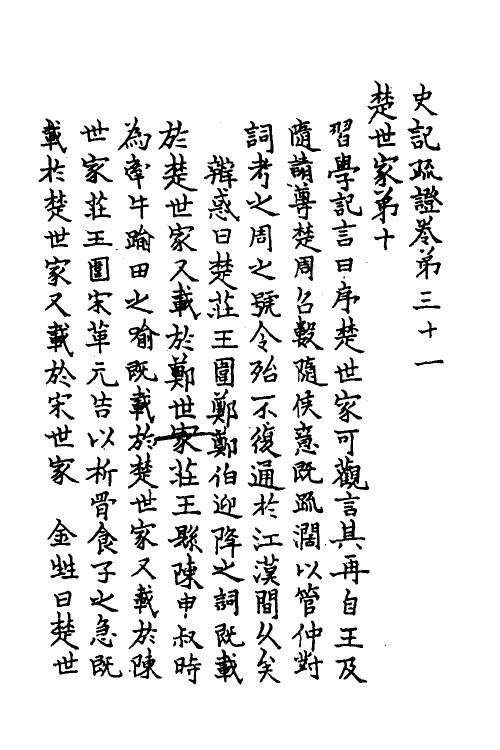 史記疏證卷第三十一
楚世家第十
習學記言曰序楚世家可觀言其再自王及
隨請尊楚周召數隨侯意既疏濶以管仲對
詞考之周之號令殆不復通於江漢間久矣
辯惑曰楚莊王圍鄭鄭伯迎降之詞既載
於楚世家又載於鄭世家莊王縣陳申叔時
為牽牛踰田之喻既載於楚世家又載於陳
世家莊王圍宋華元告以析骨食子之急既
載於楚世家又載於宋世家 金甡曰楚世